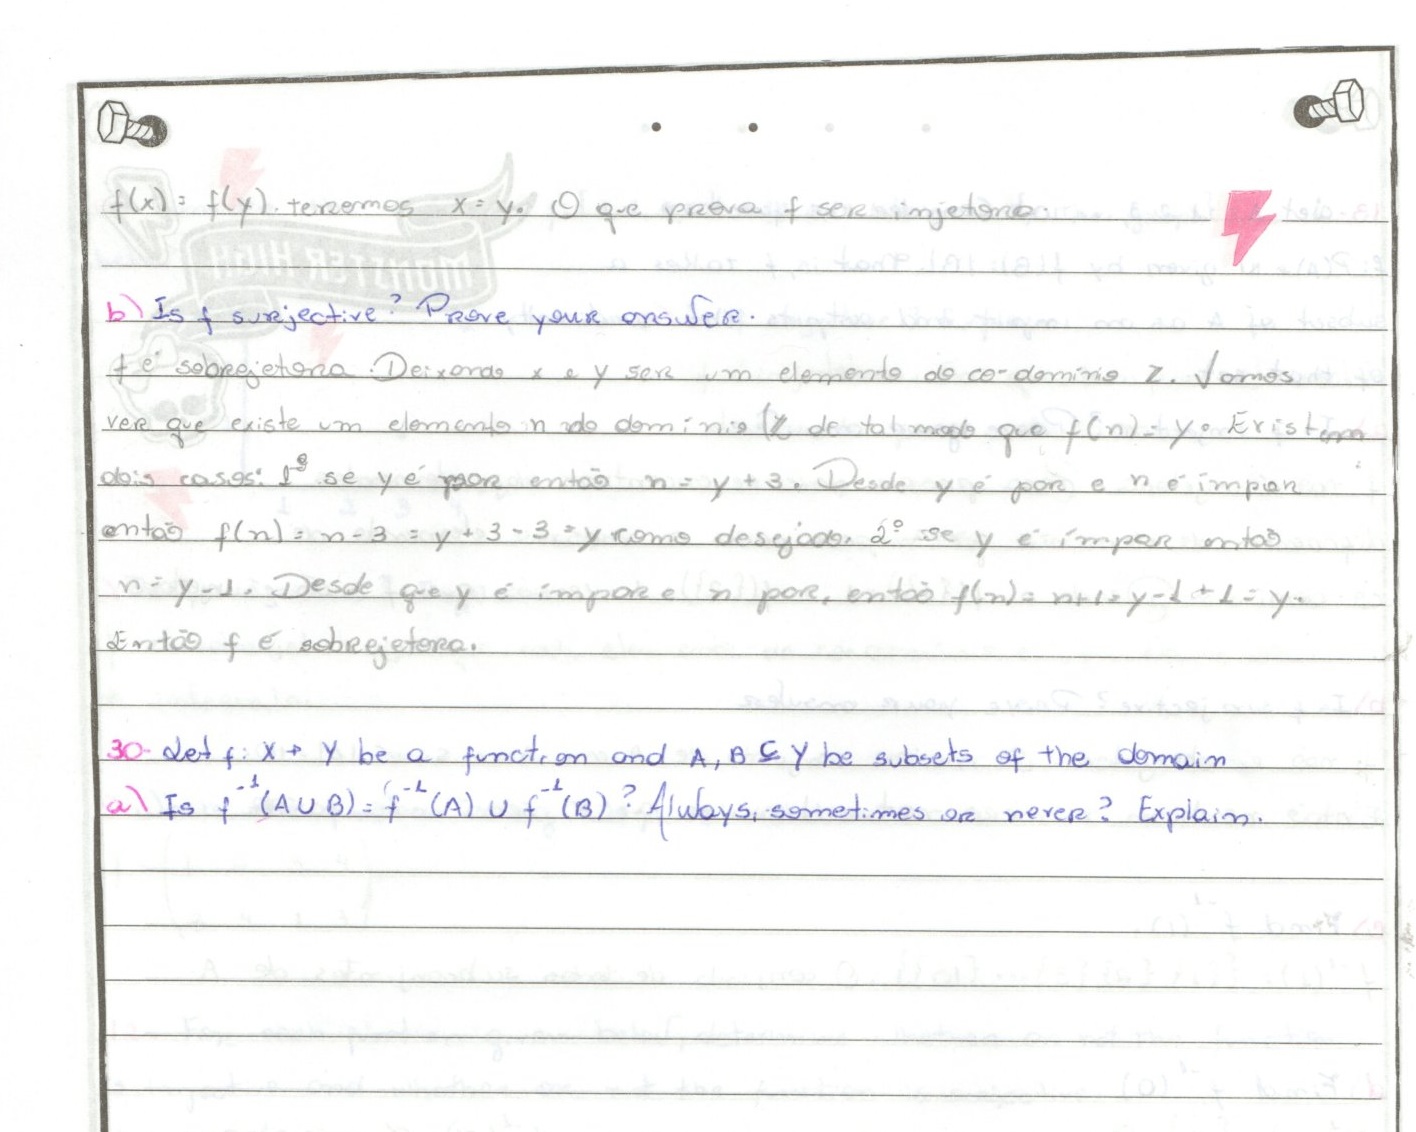 f(x) = f(y). teremos x = y. O que prova f ser injetora.
b) Is f surjective? Prove your answer.
f é sobrejetora. Deixando x e y ser um elemento do co-domínio Z. Vamos
ver que existe um elemento n do domínio Z de tal modo que f(n) = y. Existem
dois casos: 1º se y é par então n = y + 3. Desde y é par e n é impar
então f(n) = n - 3 = y + 3 - 3 = y como desejado. 2º se y é ímpar então
n = y - 1. Desde que y é impar e n par, então f(n) = n+1 = y - 1 + 1 = y.
Então f é sobrejetora.
30- Let f: X → Y be a function and A, B ⊆ Y be subsets of the domain
a) Is f⁻¹(A ∪ B) = f⁻¹(A) ∪ f⁻¹(B)? Always, sometimes or never? Explain.